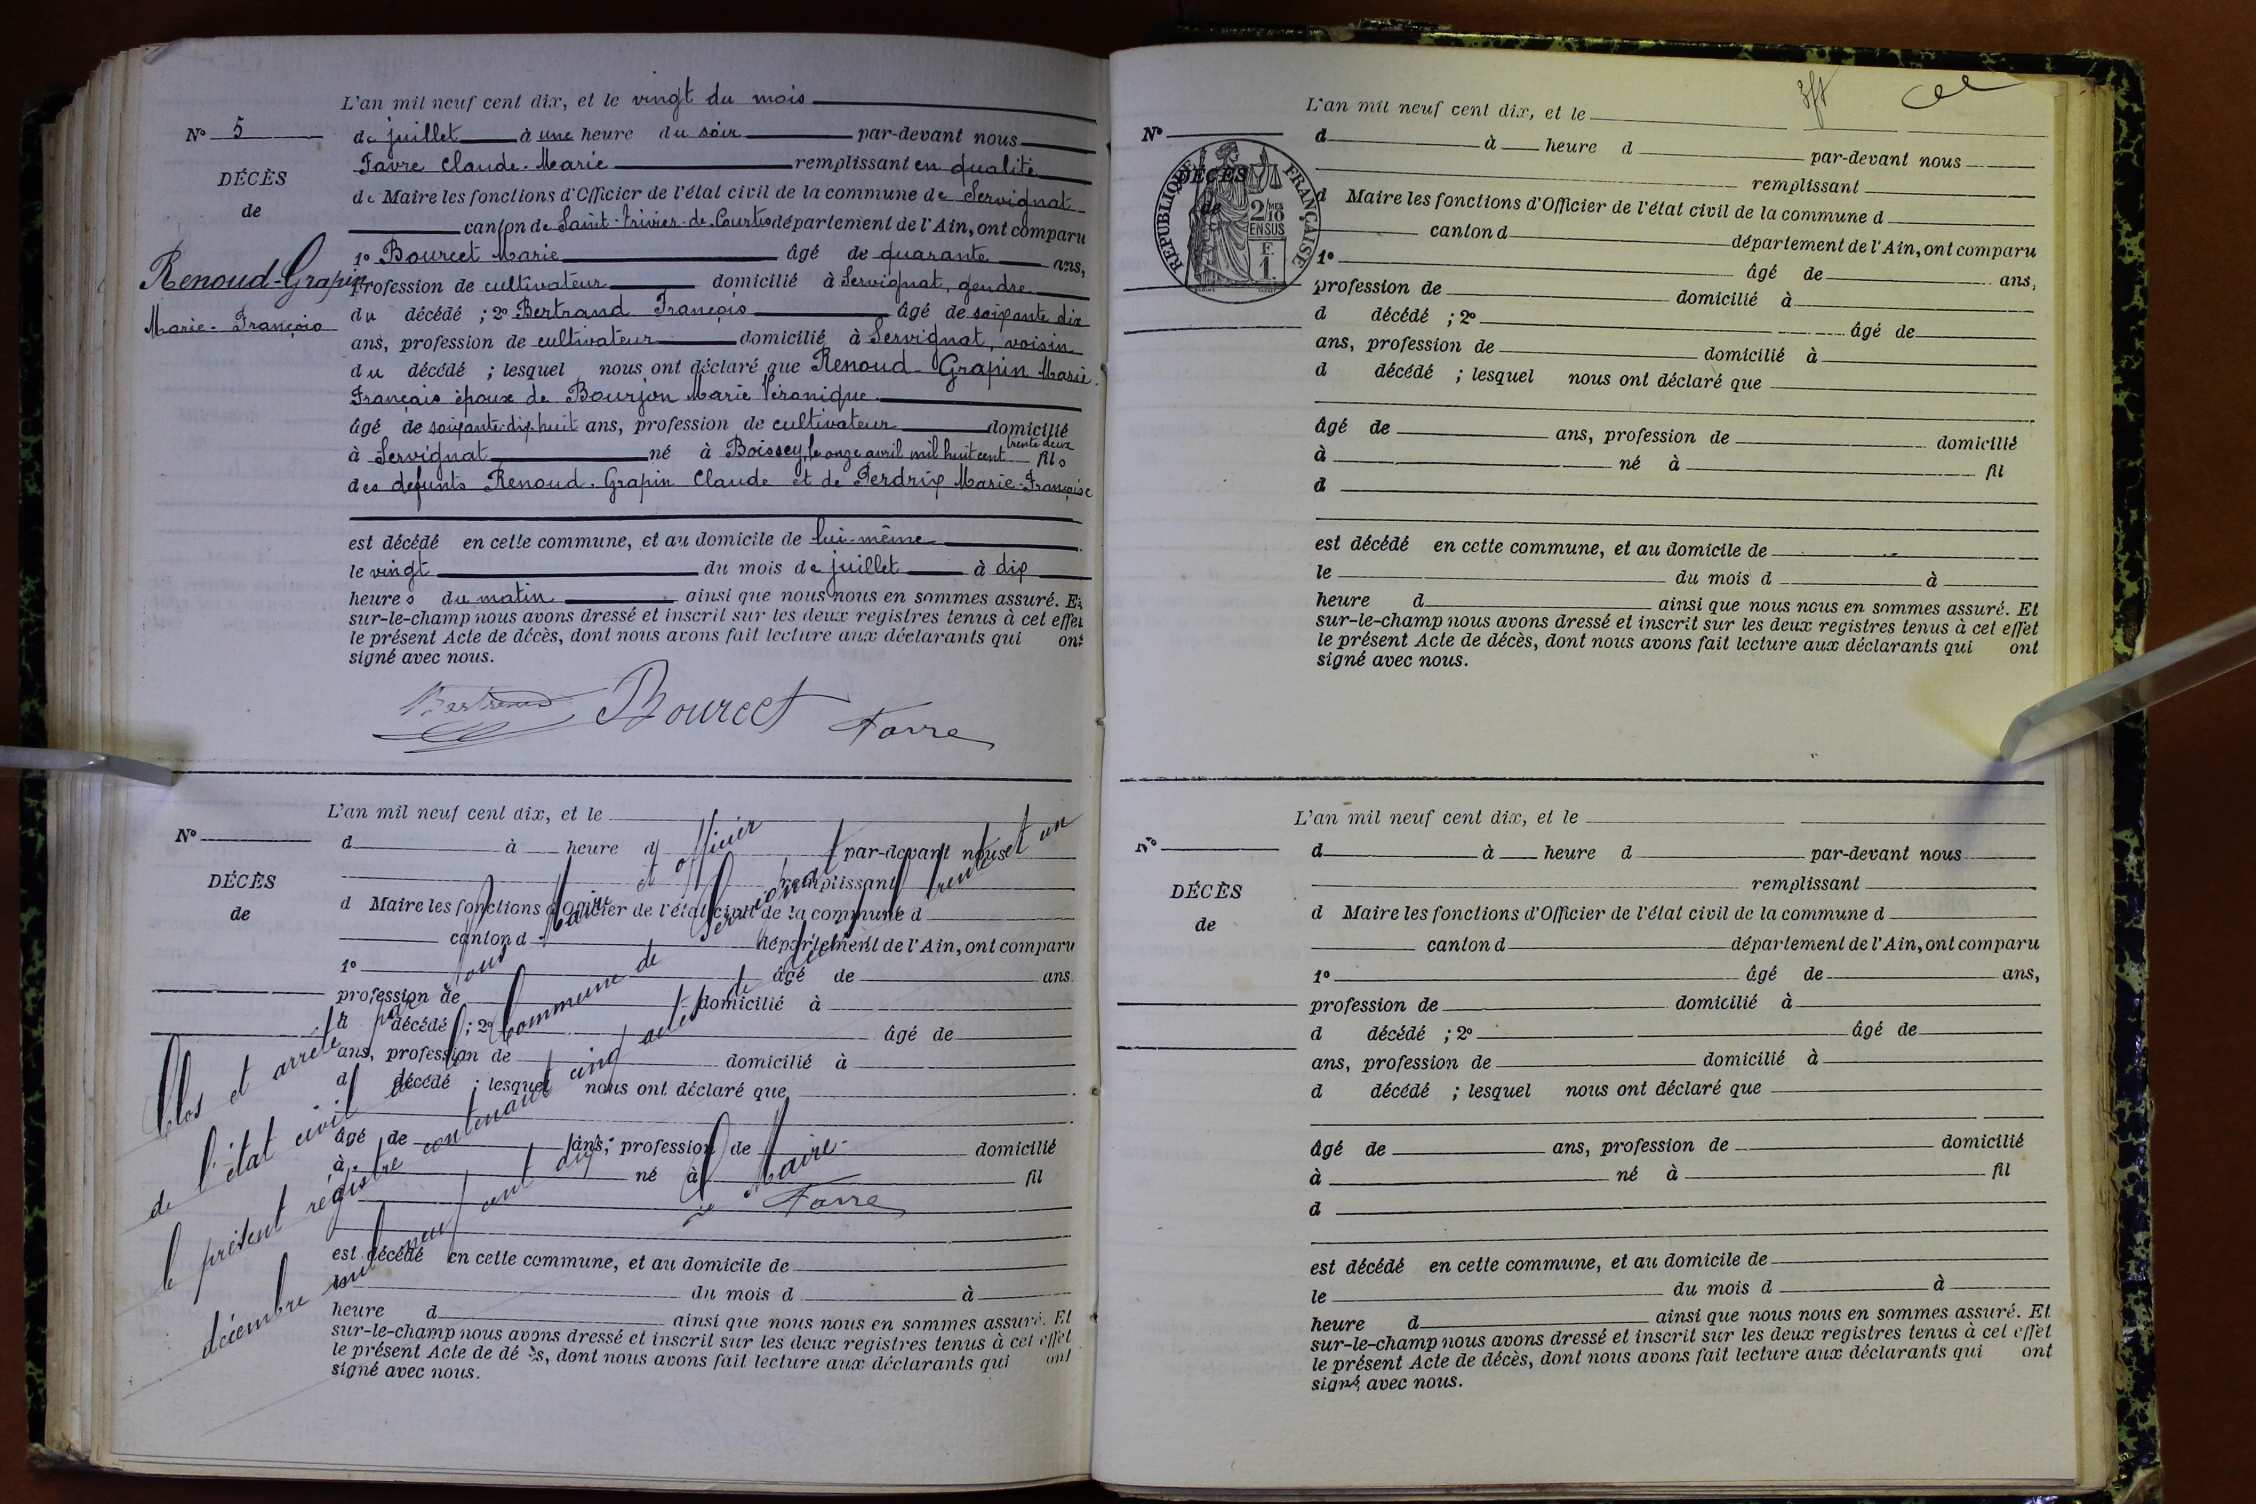 L'an mil neuf cent dix, et le vingt du mois
N° 5
de juillet à une heure du soir par-devant nous
Favre Claude-Marie remplissant en qualité
DÉCÈS
de Maire les fonctions d'Officier de l'état civil de la commune de Servignat
de
canton de Saint-trivier-de-Courtes département de l'Ain, ont comparu
Renoud-Grapin
Marie-François
1° Bourcet Marie âgé de quarante ans,
profession de cultivateur domicilié à Servignat, gendre
du décédé ; 2° Bertrand François âgé de soixante dix
ans, profession de cultivateur domicilié à Servignat, voisin
du décédé ; lesquel nous ont déclaré que Renoud-Grapin Marie
Français époux de Bourjon Marie Véronique
âgé de soixante-dix huit ans, profession de cultivateur domicilié
à Servignat né à Boissey, le onze avril mil huit cent trente deux fils
des defunts Renoud-Grapin Claude et de Perdrix Marie-Françoise
est décédé en cette commune, et au domicile de lui-même
le vingt du mois de juillet à dix
heures du matin ainsi que nous nous en sommes assuré. Et
sur-le-champ nous avons dressé et inscrit sur les deux registres tenus à cet effet
le présent Acte de décès, dont nous avons fait lecture aux déclarants qui ont
signé avec nous.
Bertrand Bourcet Favre
L'an mil neuf cent dix, et le
N°
d à heure d par-devant nous
remplissant
DÉCÈS
d Maire les fonctions d'Officier de l'état civil de la commune d
de
canton d département de l'Ain, ont comparu
1° âgé de ans.
profession de domicilié à
d décédé ; 2° âgé de
ans, profession de domicilié à
d décédé ; lesquel nous ont déclaré que
âgé de ans, profession de domicilié
à né à fil
d
est décédé en cette commune, et au domicile de
le du mois d à
heure d ainsi que nous nous en sommes assuré. Et
sur-le-champ nous avons dressé et inscrit sur les deux registres tenus à cet effet
le présent Acte de décès, dont nous avons fait lecture aux déclarants qui ont
signé avec nous.
Clos et arrêté par nous Maire et officier
de l'état civil de la Commune de Servignat
le présent régistre contenant cinq actes le trente et un
décembre mil neuf cent dix
Le Maire
Favre
L'an mil neuf cent dix, et le
N°
d à heure d par-devant nous
remplissant
DÉCÈS
de
RÉPUBLIQUE FRANÇAISE
2/10 EN SUS
F. 1.
d Maire les fonctions d'Officier de l'état civil de la commune d
canton d département de l'Ain, ont comparu
1° âgé de ans,
profession de domicilié à
d décédé ; 2° âgé de
ans, profession de domicilié à
d décédé ; lesquel nous ont déclaré que
âgé de ans, profession de domicilié
à né à fil
d
est décédé en cette commune, et au domicile de
le du mois d à
heure d ainsi que nous nous en sommes assuré. Et
sur-le-champ nous avons dressé et inscrit sur les deux registres tenus à cet effet
le présent Acte de décès, dont nous avons fait lecture aux déclarants qui ont
signé avec nous.
L'an mil neuf cent dix, et le
N°
d à heure d par-devant nous
remplissant
DÉCÈS
d Maire les fonctions d'Officier de l'état civil de la commune d
de
canton d département de l'Ain, ont comparu
1° âgé de ans,
profession de domicilié à
d décédé ; 2° âgé de
ans, profession de domicilié à
d décédé ; lesquel nous ont déclaré que
âgé de ans, profession de domicilié
à né à fil
d
est décédé en cette commune, et au domicile de
le du mois d à
heure d ainsi que nous nous en sommes assuré. Et
sur-le-champ nous avons dressé et inscrit sur les deux registres tenus à cet effet
le présent Acte de décès, dont nous avons fait lecture aux déclarants qui ont
signé avec nous.